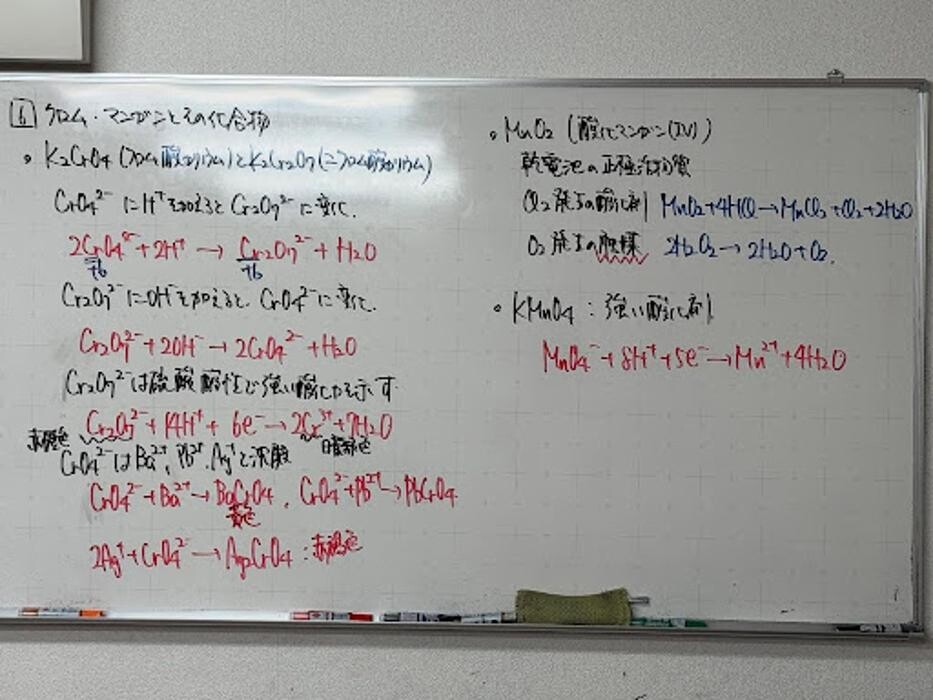 6 クロム・マンガンとその化合物
• K₂CrO₄ (クロム酸カリウム)とK₂Cr₂O₇ (二クロム酸カリウム)
CrO₄²⁻ にH⁺を加えるとCr₂O₇²⁻に変化.
2CrO₄²⁻ + 2H⁺ → Cr₂O₇²⁻ + H₂O
+6 +6
Cr₂O₇²⁻にOH⁻を加えると CrO₄²⁻に変化.
Cr₂O₇²⁻ + 2OH⁻ → 2CrO₄²⁻ + H₂O
Cr₂O₇²⁻は硫酸酸性で強い酸化力を示す
Cr₂O₇²⁻ + 14H⁺ + 6e⁻ → 2Cr³⁺ + 7H₂O
赤橙色 暗緑色
CrO₄²⁻はBa²⁺, Pb²⁺, Ag⁺と沈殿
CrO₄²⁻ + Ba²⁺ → BaCrO₄, CrO₄²⁻ + Pb²⁺ → PbCrO₄
黄色
2Ag⁺ + CrO₄²⁻ → Ag₂CrO₄ : 赤褐色
• MnO₂ (酸化マンガン(IV))
乾電池の正極活物質
Cl₂発生の酸化剤 MnO₂+4HCl→MnCl₂+Cl₂+2H₂O
O₂発生の触媒 2H₂O₂→2H₂O+O₂.
• KMnO₄ : 強い酸化剤
MnO₄⁻ + 8H⁺ + 5e⁻ → Mn²⁺ + 4H₂O